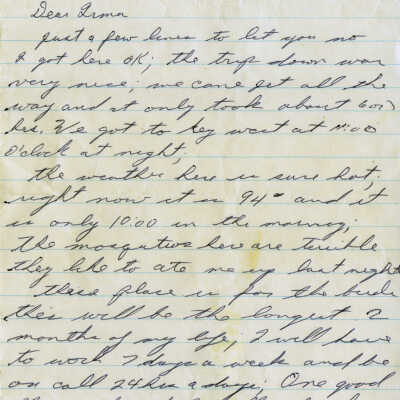 Dear Irma
Just a few lines to let you no
I got here OK; the trip down was
very nice; we came jet all the
way and it only took about 6 or 7
hrs. We got to Key West at 11:00
O'clock at night;
the weather here is sure hot;
right now it is 94° and it
is only 10:00 in the morning;
The mosquitos here are terrible
they like to ate me up last night
these place is for the birds
this will be the longest 2
months of my life; I will have
to work 7 days a week and be
on call 24 hrs a day; One good